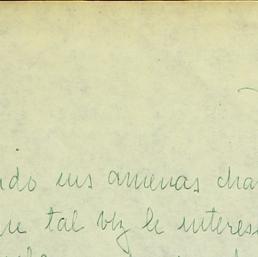 ndo sus amenas char
ue tal vez le interes